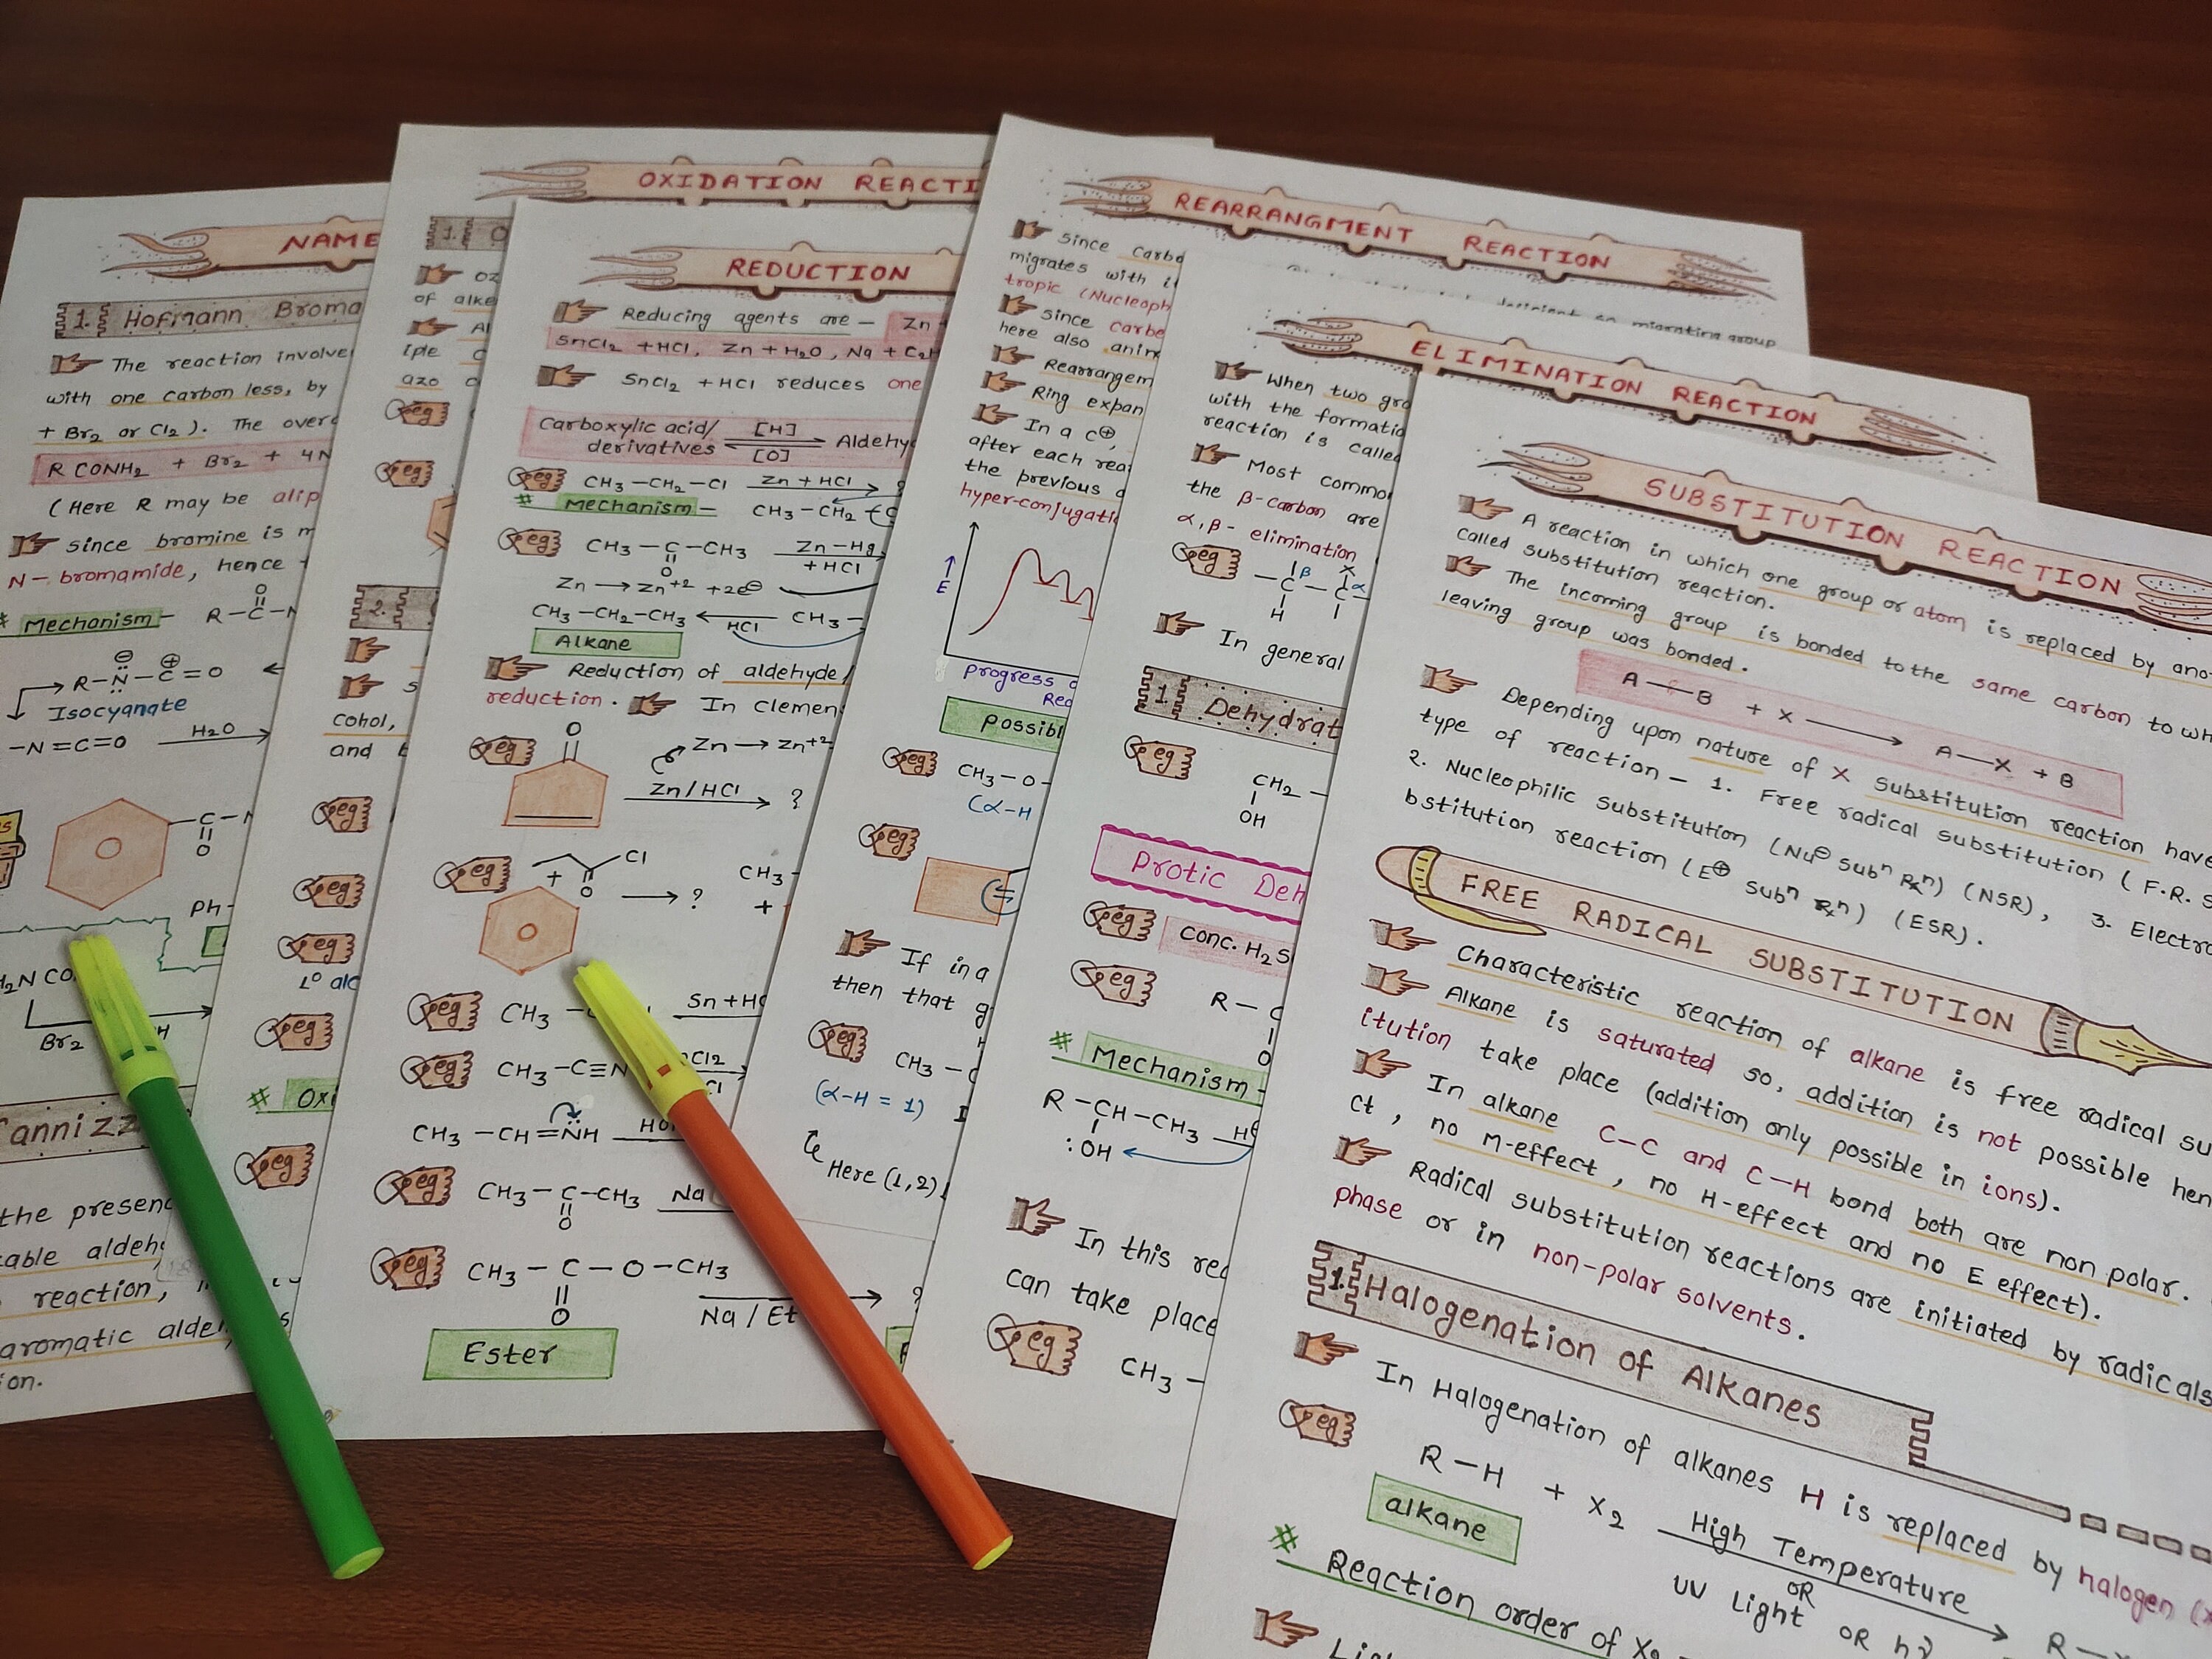 NAME
1. Hofmann Broma
The reaction involve
with one carbon less, by
+ Br2 or Cl2). The over
R CONH2 + Br2 + 4N
(Here R may be alip
Since bromine is m
N-bromamide, hence
# Mechanism- R-C-
O
⊖ ⊕
R-N-C=O
Isocyanate
-N=C=O H2O
C-
O
Ph-
H2N CO
Br2 H
Cannizz
the presenc
able aldeh
reaction,
aromatic alde
ion.
OXIDATION REACTI
1. O
oz
of alke
Al
iple
azo
eg
eg
2.
S
cohol,
and
eg
eg
eg
1° alc
eg
# Oxi
eg
REDUCTION
Reducing agents are - Zn +
SnCl2 +HCl, Zn + H2O, Na + C2H
SnCl2 + HCl reduces one
Carboxylic acid/ [H] Aldehy
derivatives [O]
eg CH3-CH2-Cl Zn + HCl ?
# Mechanism- CH3-CH2
eg CH3-C-CH3 Zn-Hg
O + HCl
Zn → Zn+2 + 2e⊖
CH3-CH2-CH3 ← HCl CH3-
Alkane
Reduction of aldehyde/
reduction. In clemen
eg O Zn → Zn+2
Zn/HCl ?
eg Cl
+ O → ? CH3-
+
eg CH3- Sn + H
eg CH3-C≡N Cl2
CH3-CH=NH
eg CH3-C-CH3 Na
O
eg CH3-C-O-CH3 ?
O Na / Et
Ester
REARRANGMENT REACTION
Since Carb
migrates with i
tropic (Nucleoph
Since carb
here also anin
Rearrangem
Ring expan
In a C⊕,
after each rea
the previous
hyper-conjugati
↑
E
progress
Rea
possibl
eg CH3-O-
(α-H
eg
If in a
then that g
eg CH3-C
(α-H = 1)
Here (1,2)
migrating group
ELIMINATION REACTION
When two gro
with the formatio
reaction is calle
Most commo
the β-carbon are
α,β- elimination
eg β X
-C-C α
H
In general
1. Dehydrat
eg CH2-
OH
Protic Deh
eg conc. H2S
eg R-C
O
# Mechanism-
R-CH-CH3
:OH
In this rea
can take place
eg CH3-
SUBSTITUTION REACTION
A reaction in which one group or atom is replaced by ano
called substitution reaction.
The incoming group is bonded to the same carbon to wh
leaving group was bonded.
A-B + X → A-X + B
Depending upon nature of X substitution reaction have
type of reaction - 1. Free radical substitution (F.R.S
2. Nucleophilic substitution (Nu⊖ Subn Rxn) (NSR), 3. Electro
bstitution reaction (E⊕ Subn Rxn) (ESR).
FREE RADICAL SUBSTITUTION
Characteristic reaction of alkane is free radical su
Alkane is saturated so, addition is not possible hen
itution take place (addition only possible in ions).
In alkane C-C and C-H bond both are non polar.
ct, no M-effect, no H-effect and no E effect).
Radical substitution reactions are initiated by radicals
phase or in non-polar solvents.
1. Halogenation of Alkanes
In Halogenation of alkanes H is replaced by halogen (x
eg R-H + X2 High Temperature
alkane OR
UV Light OR hν R-
# Reaction order of X2